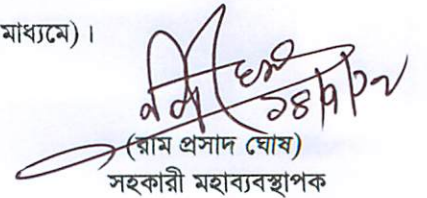 মাধ্যমে)।
(রাম প্রসাদ ঘোষ)
সহকারী মহাব্যবস্থাপক